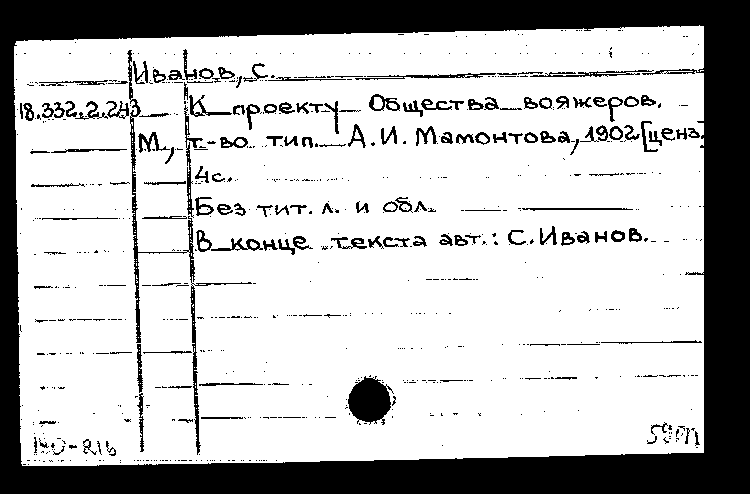 Иванов, С.
18.332.2.243 К проекту Общества вояжеров.
М., т-во тип. А.И. Мамонтова, 1902 [ценз.
4с.
Без тит. л. и обл.
В конце текста авт.: С. Иванов.